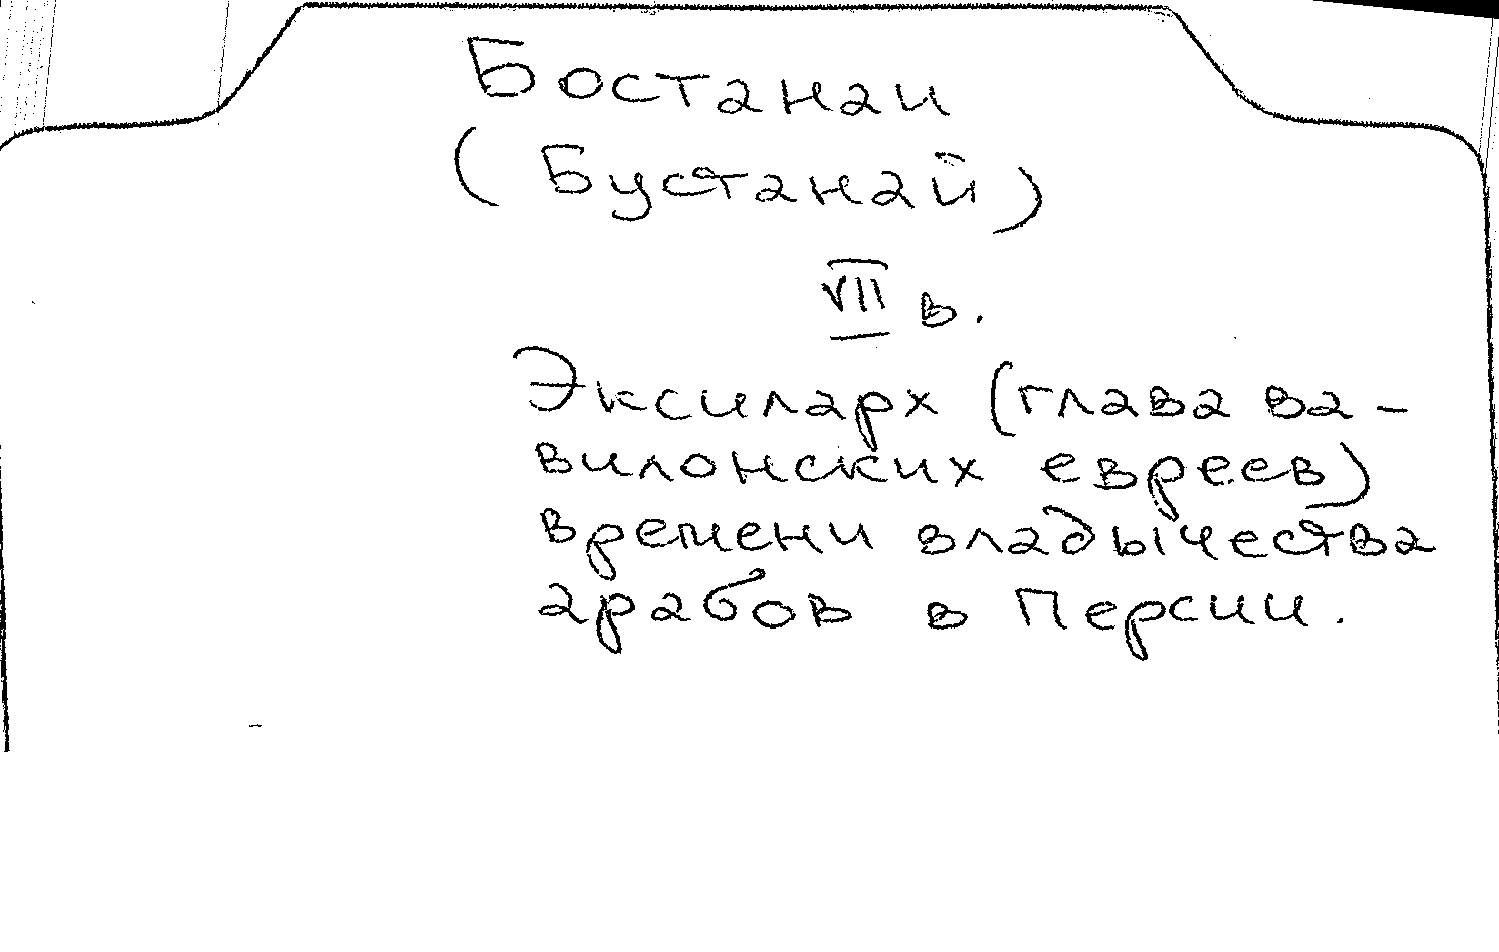 Бостанаи
(Бустанай)
VII в.
Эксиларх (глава ва-
вилонских евреев)
времени владычества
арабов в Персии.